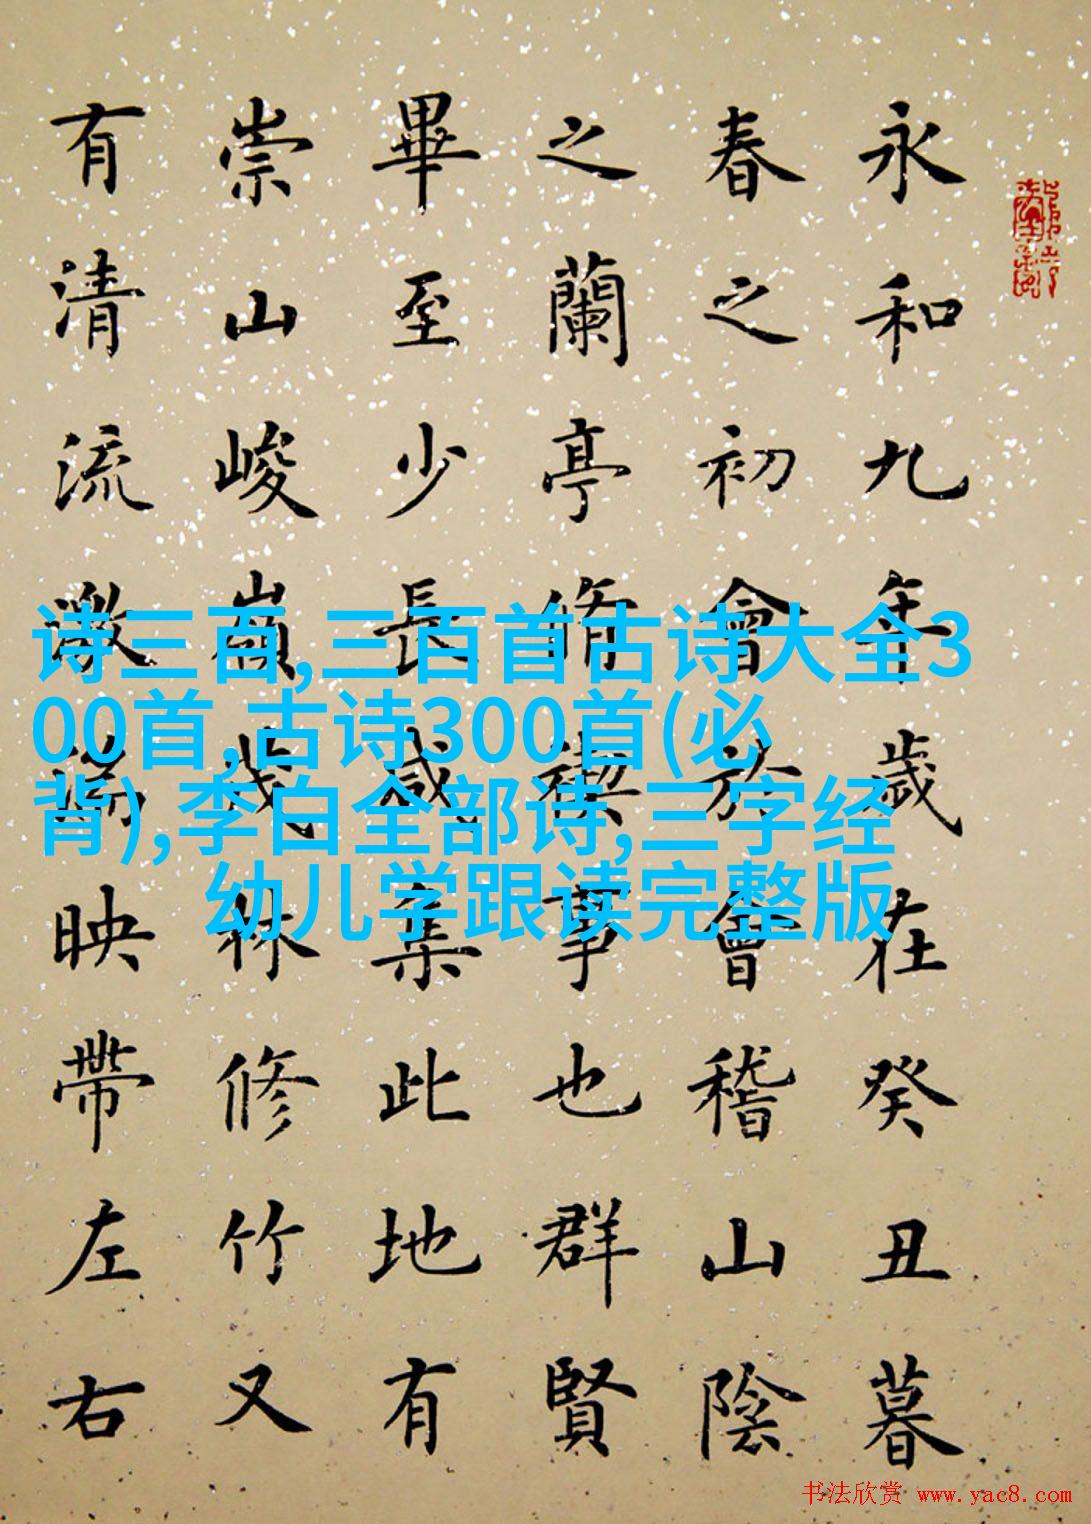 永和九年歲在癸丑暮
春之初會於會稽山陰
之蘭亭脩禊事也群賢
畢至少長咸集此地有
崇山峻嶺茂林修竹又
有清流激湍映帶左右
诗三百,三百首古诗大全3
00首,古诗300首(必
背),李白全部诗,三字经
幼儿学跟读完整版
书法欣赏 www.yac8.com